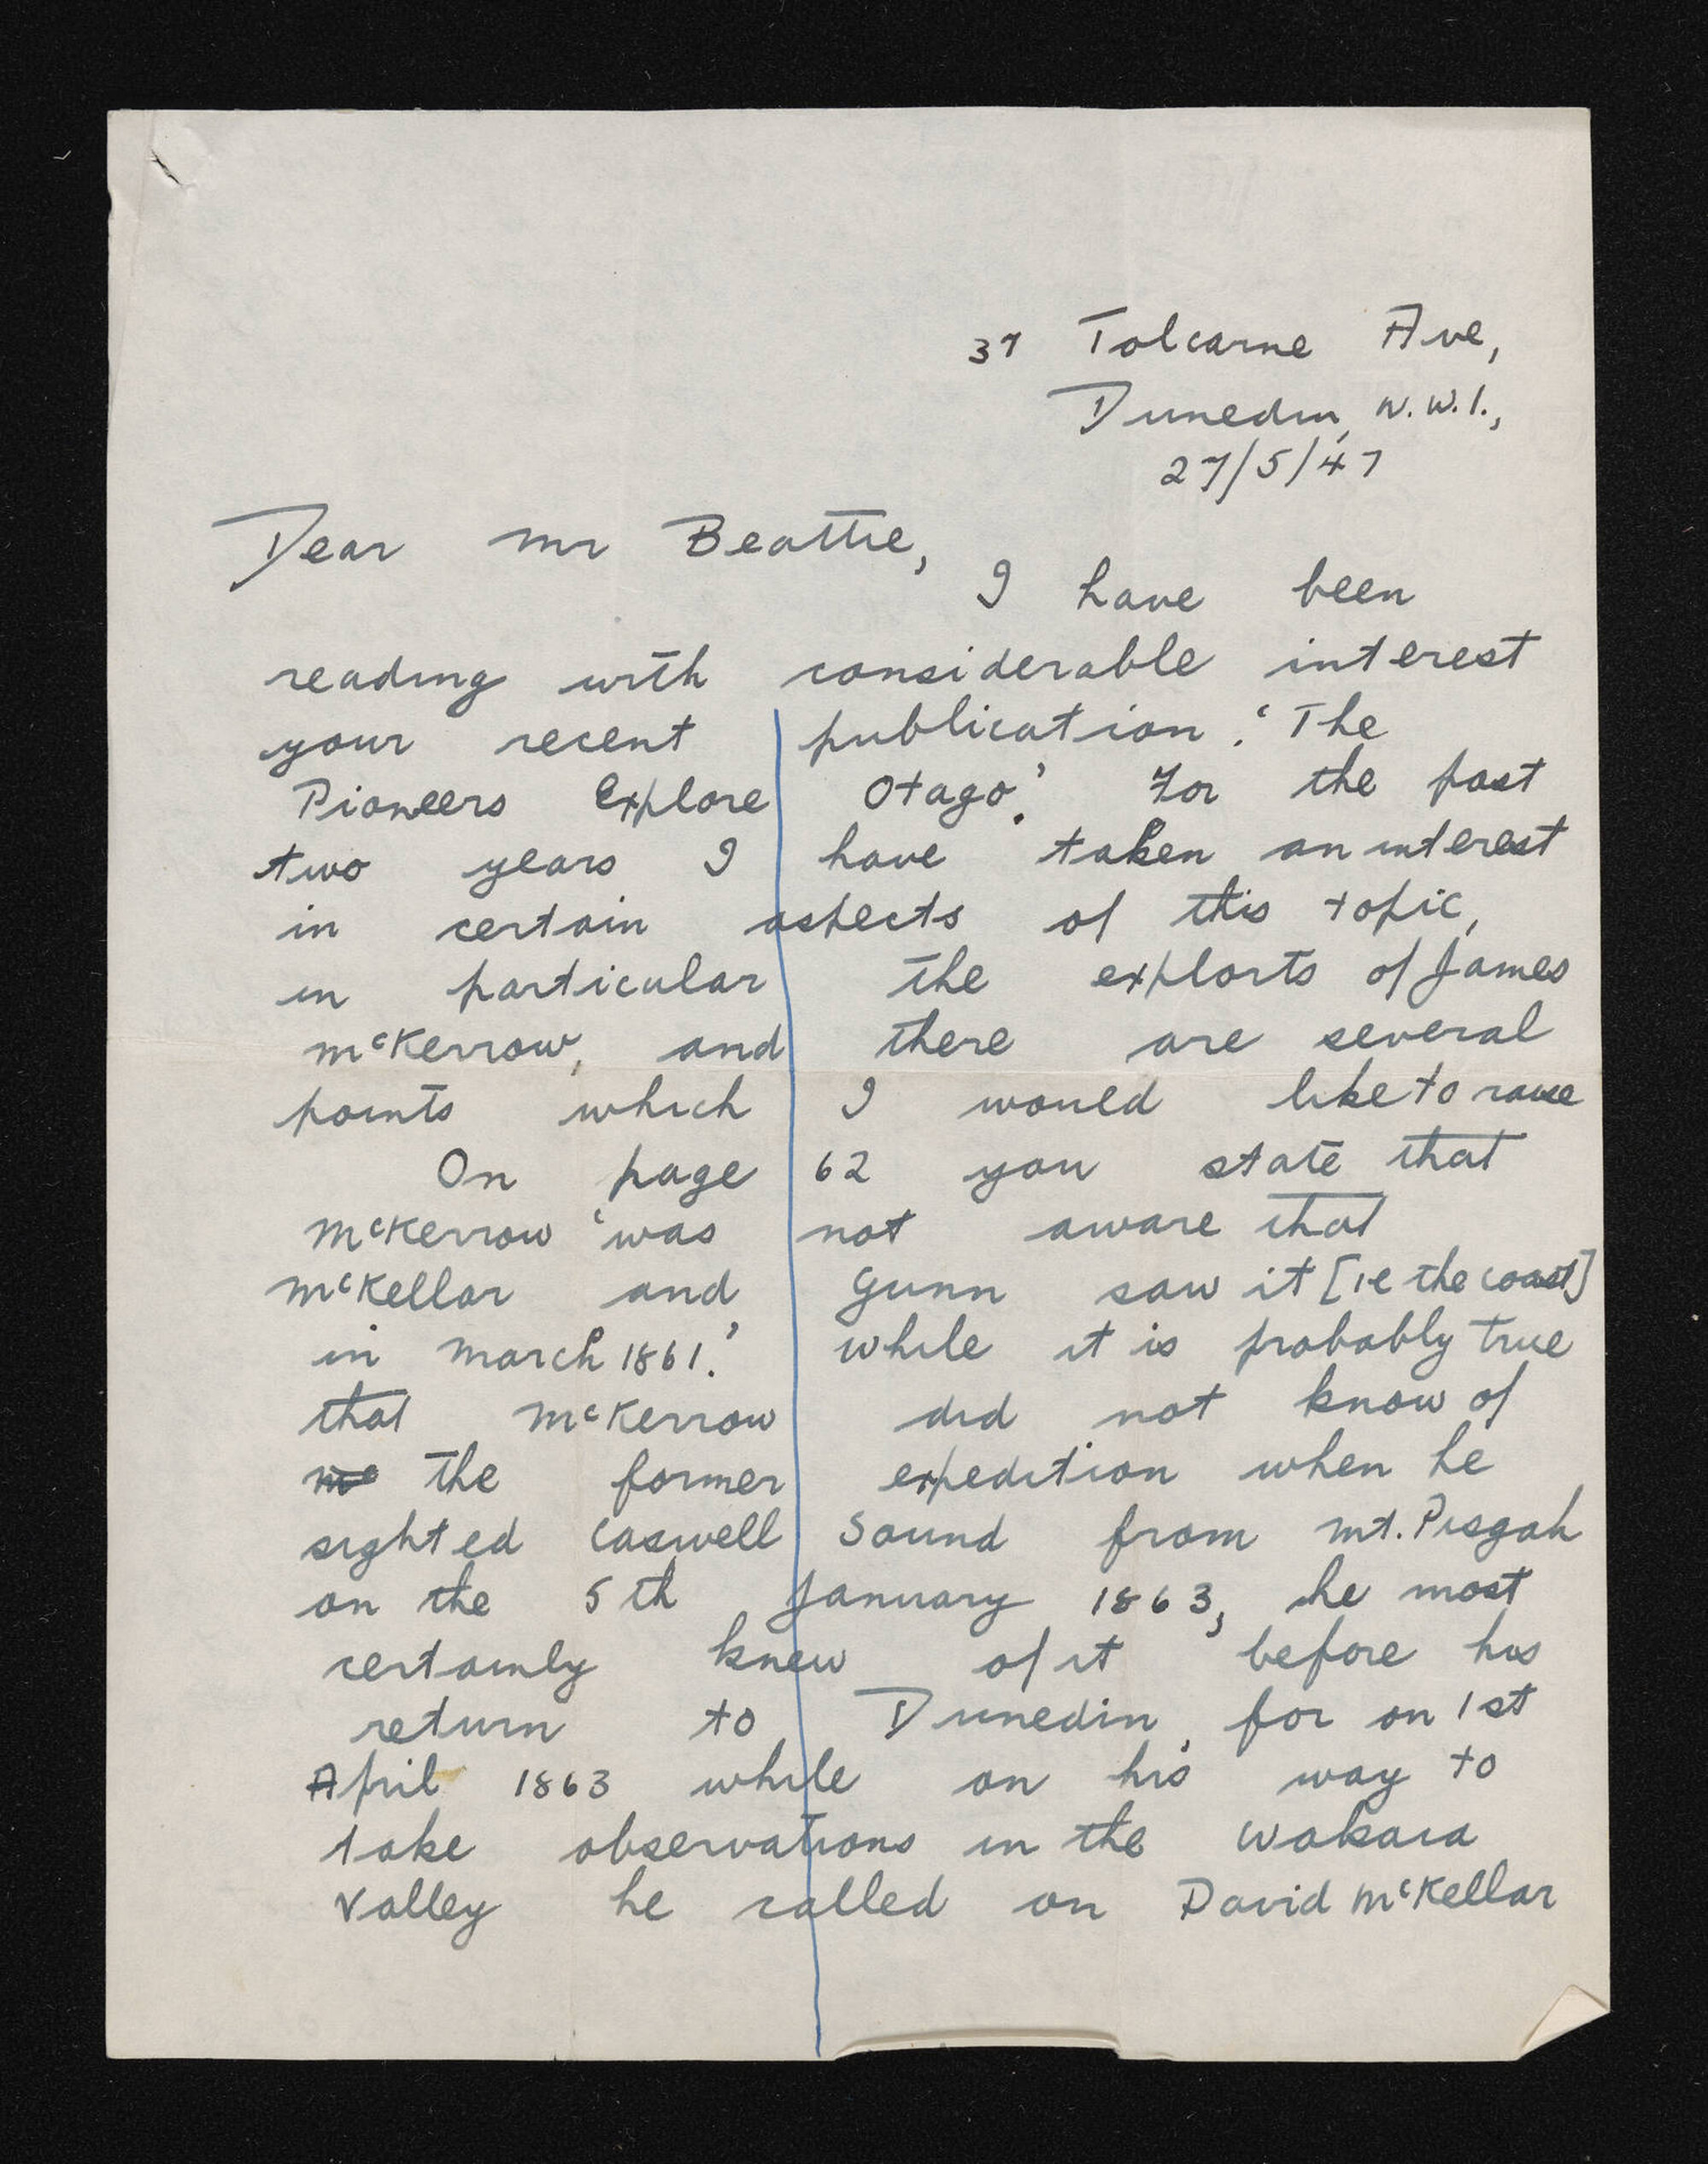 37 Tolcarne Ave,
Dunedin, N.W.1.,
27/5/47
Dear Mr Beattie,
I have been
reading with considerable interest
your recent publication: 'The
Pioneers Explore Otago'. For the past
two years I have taken an interest
in certain aspects of this topic,
in particular the exploits of James
McKerrow, and there are several
points which I would like to raise
On page 62 you state that
McKerrow 'was not aware that
McKellar and Gunn saw it [ie the coast]
in March 1861.' While it is probably true
that McKerrow did not know of
Mc the former expedition when he
sighted Caswell Sound from Mt. Pisgah
on the 5th January 1863, he most
certainly knew of it before his
return to Dunedin, for on 1st
April 1863 while on his way to
take observations in the Wakaia
Valley he called on David McKellar